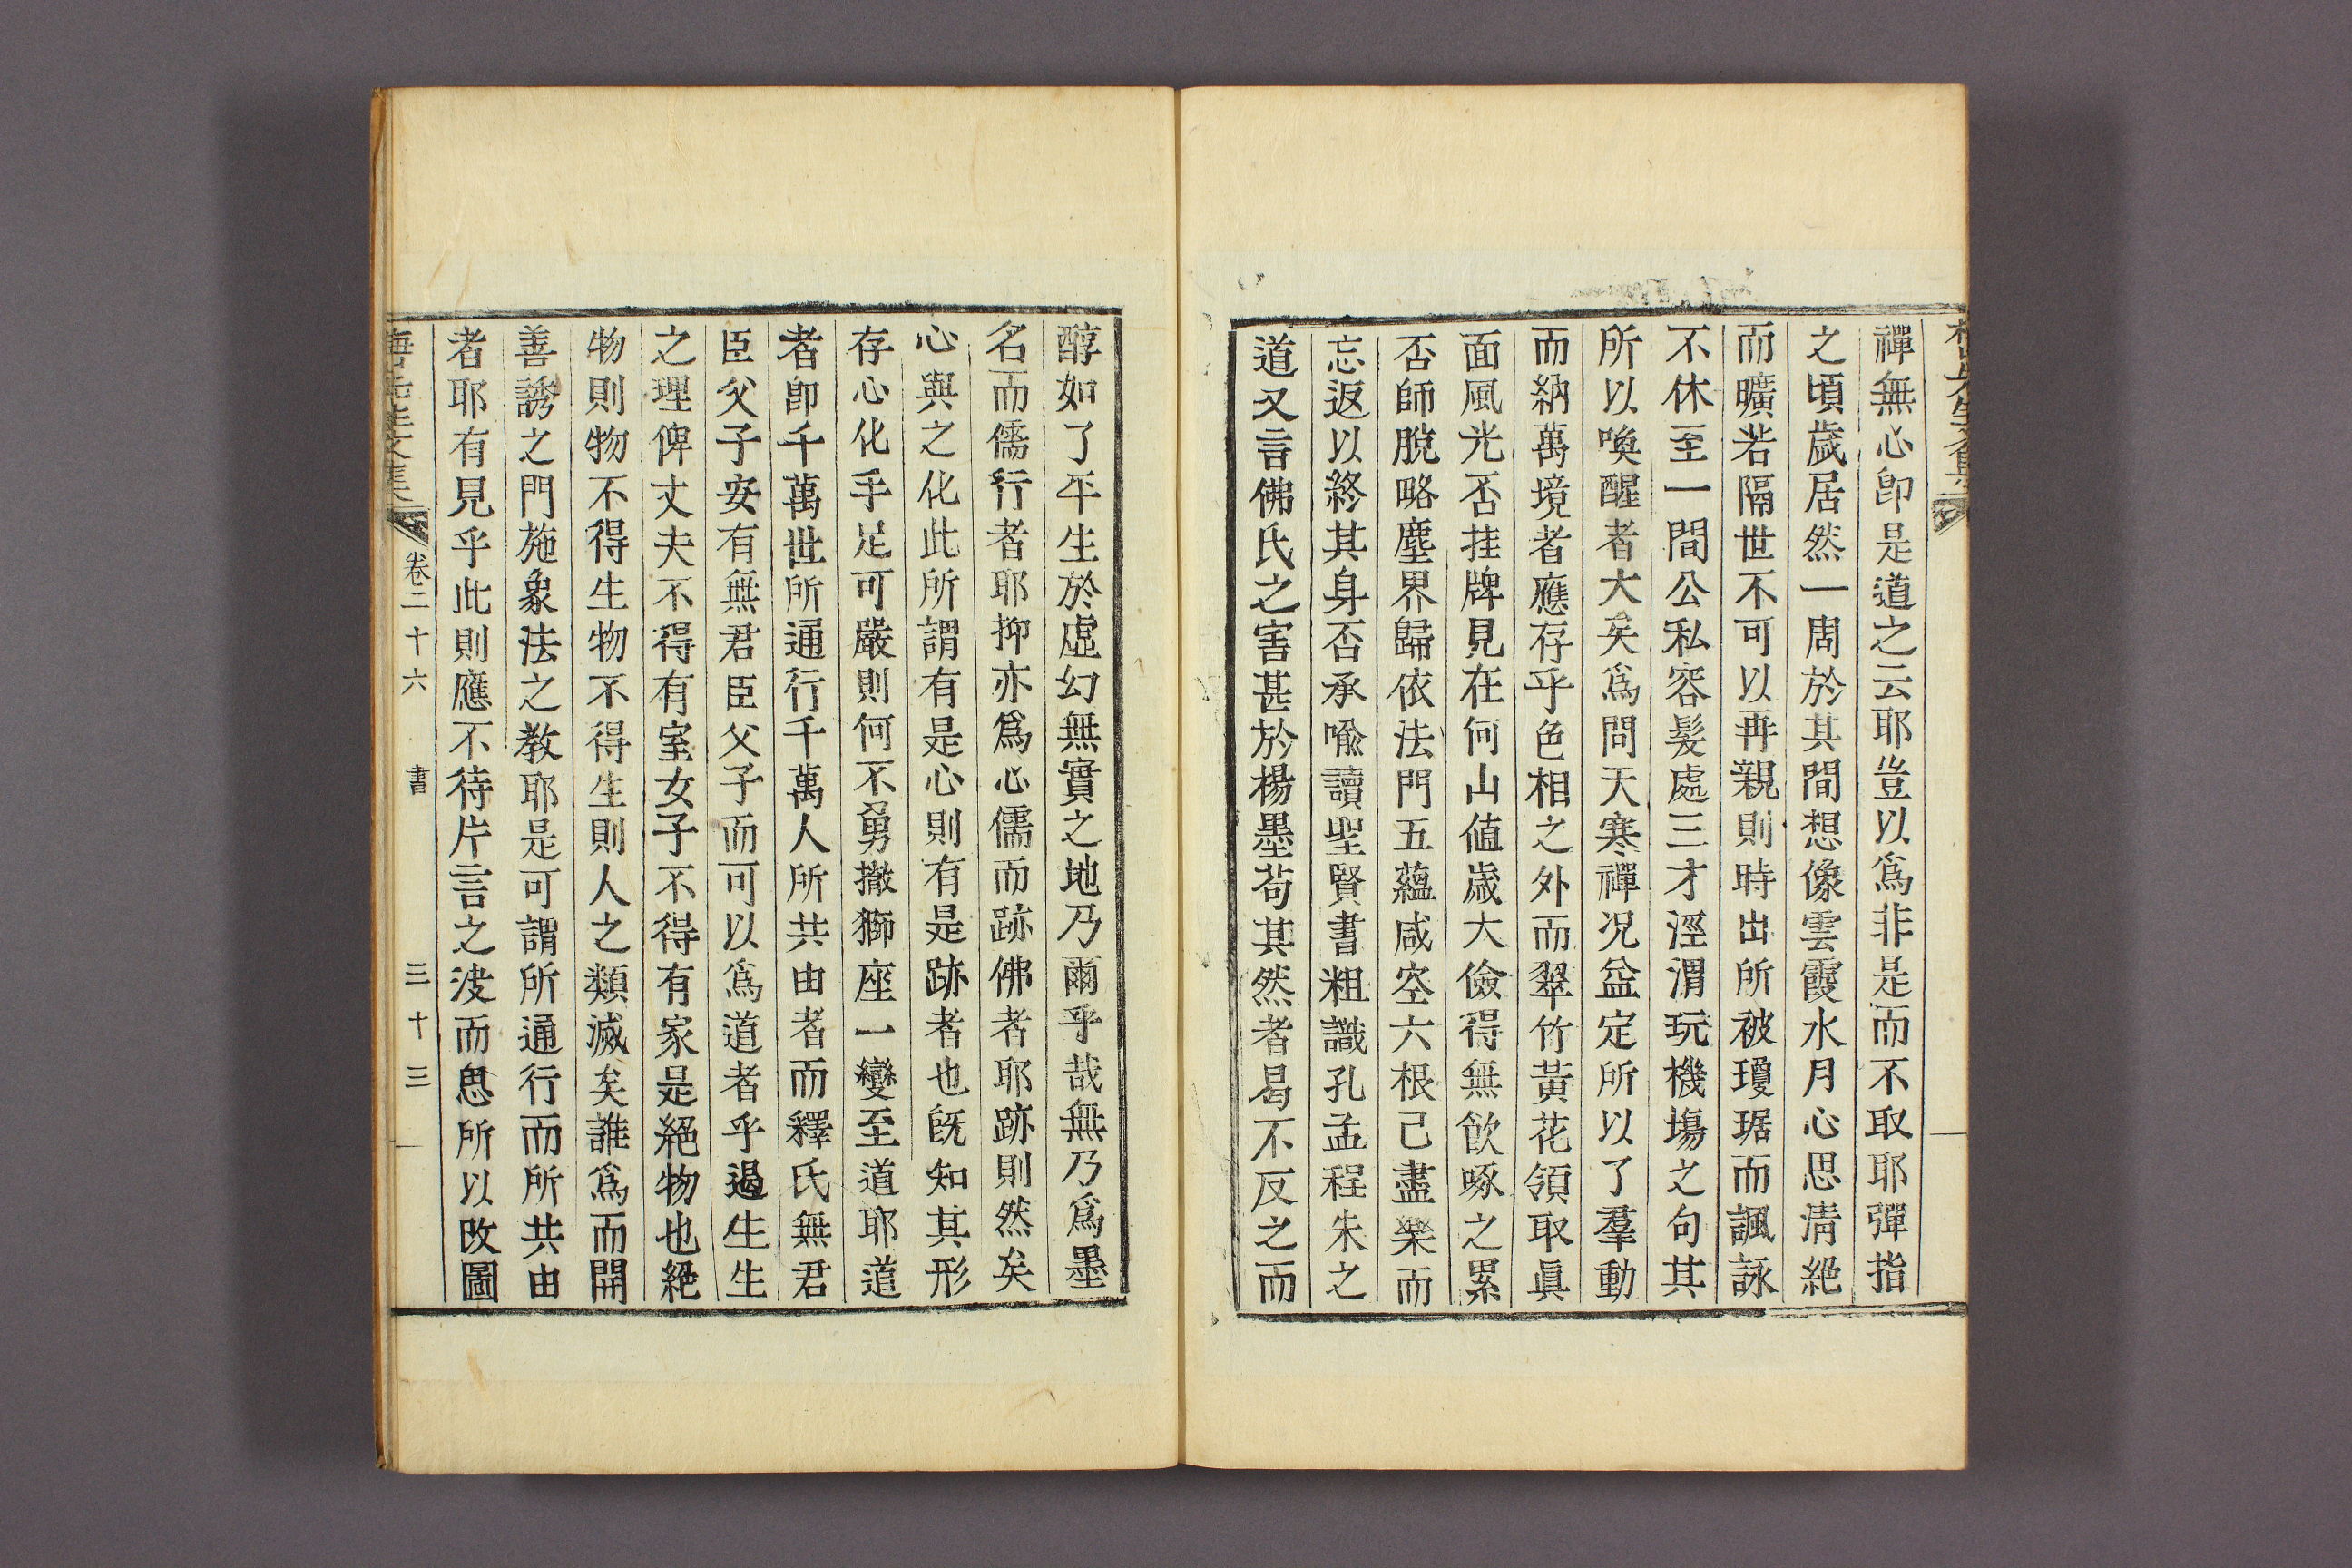 禪無心卽是道之云耶豈以爲非是而不取耶彈指
之頃歲居然一周於其間想像雲霞水月心思淸絶
而曠若隔世不可以再親則時出所被瓊琚而諷詠
不休至一間公私容髮處三才涇渭玩機塲之句其
所以喚醒者大矣爲問天寒禪况益定所以了羣動
而納萬境者應存乎色相之外而翠竹黃花領取眞
面風光否挂牌見在何山値歲大儉得無飮啄之累
否師脫略塵界歸依法門五蘊咸空六根己盡樂而
忘返以終其身否承喩讀聖賢書粗識孔孟程朱之
道又言佛氏之害甚於楊墨苟其然者曷不反之而
醇如了平生於虛幻無實之地乃爾乎哉無乃爲墨
名而儒行者耶抑亦爲心儒而跡佛者耶跡則然矣
心與之化此所謂有是心則有是跡者也旣知其形
存心化手足可嚴則何不勇撤獅座一變至道耶道
者卽千萬世所通行千萬人所共由者而釋氏無君
臣父子安有無君臣父子而可以爲道者乎遏生生
之理俾丈夫不得有室女子不得有家是絕物也絕
物則物不得生物不得生則人之類滅矣誰爲而開
善誘之門施象法之敎耶是可謂所通行而所共由
者耶有見乎此則應不待片言之決而思所以改圖
卷二十六 書 三十三